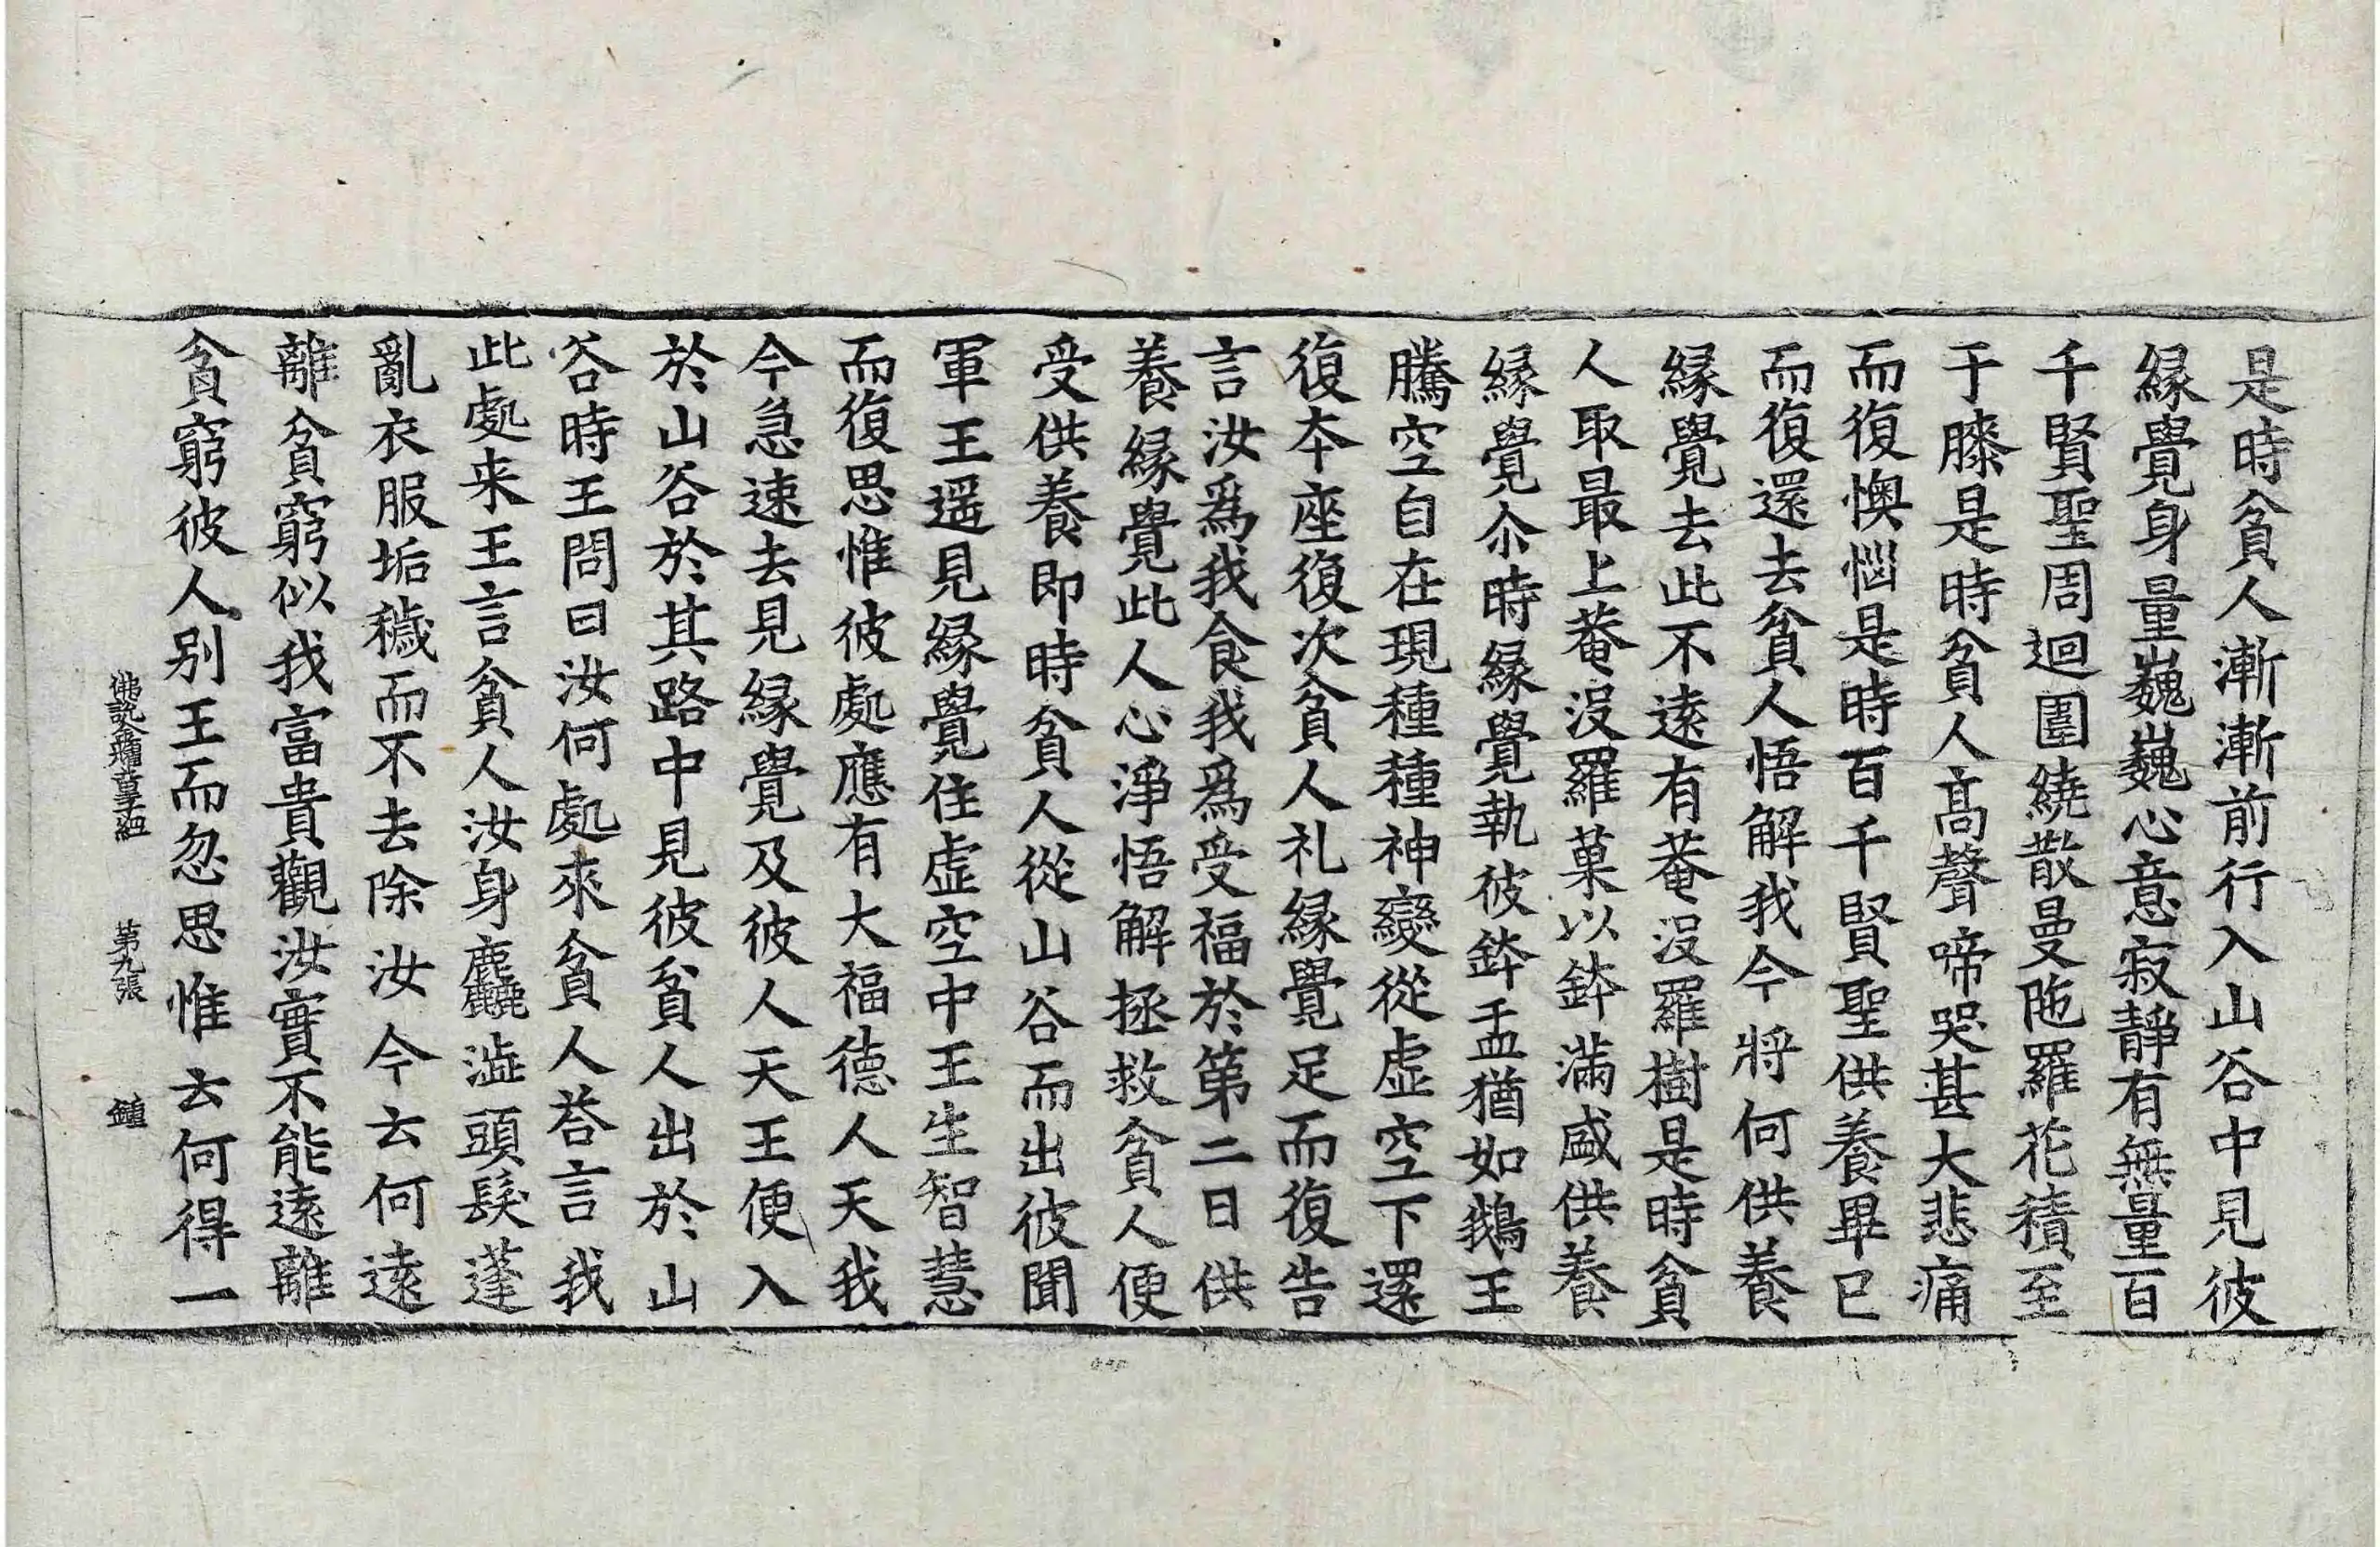 是時貧人漸漸前行入山谷中見彼
縁覺身量巍巍心意寂靜有無量百
千賢聖周迴圍繞散曼陁羅花積至
于膝是時貧人髙聲啼哭甚大悲痛
而復懊惱是時百千賢聖供養畢已
而復還去貧人悟解我今將何供養
縁覺去此不遠有菴没羅樹是時貧
人取最上菴没羅菓以鉢滿盛供養
縁覺尒時縁覺執彼鉢盂猶如鵝王
騰空自在現種種神變從虚空下還
復本座復次貧人礼縁覺足而復告
言汝爲我食我爲受福於第二日供
養縁覺此人心淨悟解拯救貧人便
受供養即時貧人從山谷而出彼聞
軍王遥見縁覺住虚空中王生智慧
而復思惟彼處應有大福德人天我
今急速去見縁覺及彼人天王便入
於山谷於其路中見彼貧人出於山
谷時王問曰汝何處來貧人荅言我
此處来王言貧人汝身麁𪋻澁頭髮蓬
亂衣服垢穢而不去除汝今云何遠
離貧窮似我富貴觀汝實不能遠離
貧窮彼人别王而忽思惟云何得一
佛說金耀童子經 第九張